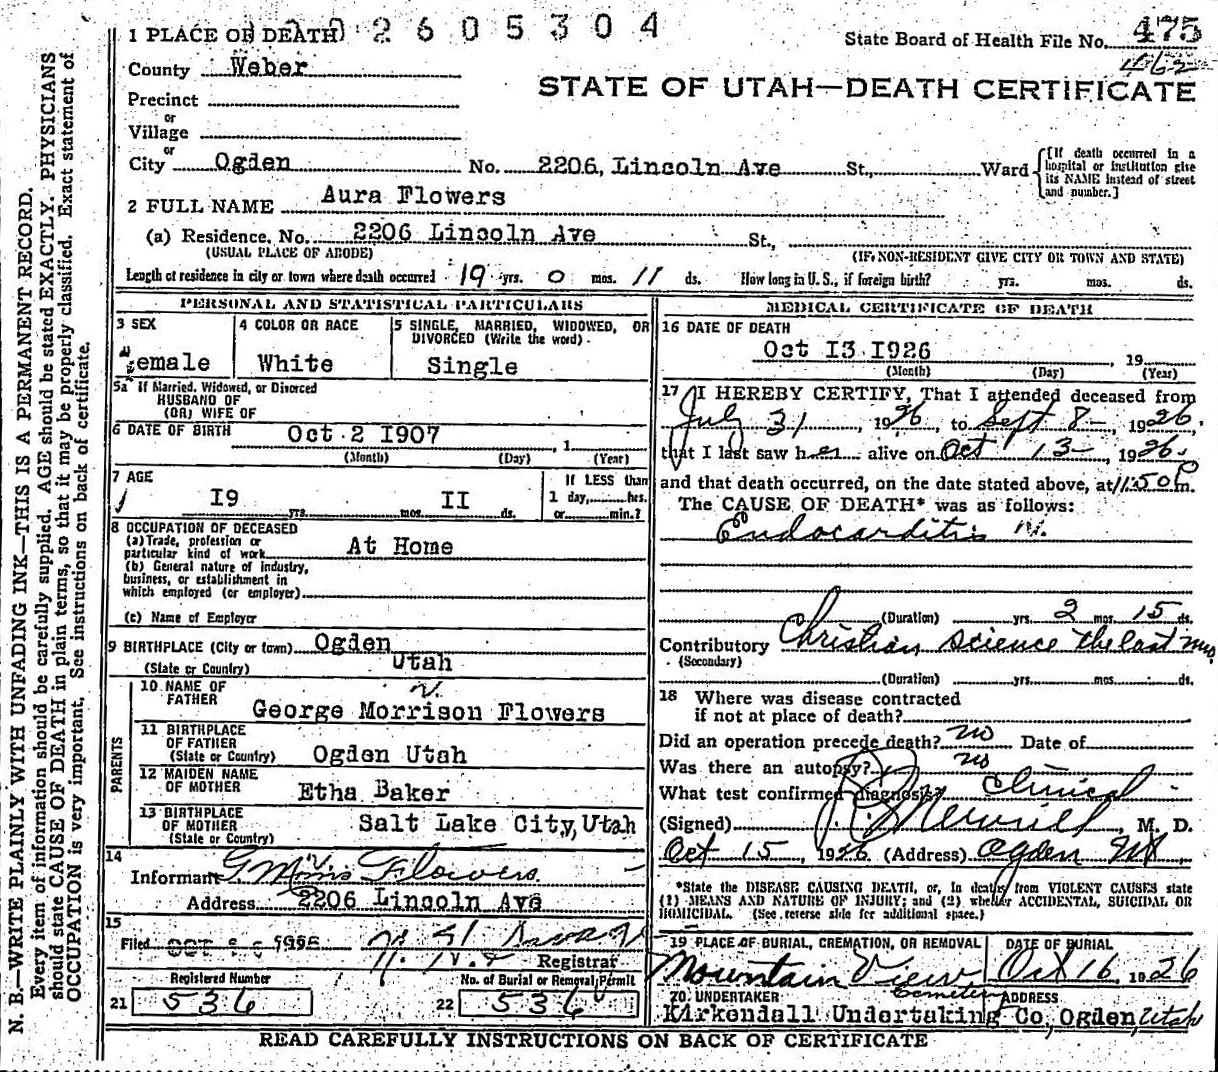 1 PLACE OF DEATH 2 6 0 5 3 0 4
State Board of Health File No. 475
462
County Weber
STATE OF UTAH—DEATH CERTIFICATE
Precinct
or
Village
or
City Ogden No. 2206, Lincoln Ave St., Ward
[If death occurred in a
hospital or institution give
its NAME instead of street
and number.]
2 FULL NAME Aura Flowers
(a) Residence, No. 2206 Lincoln Ave St.,
(USUAL PLACE OF ABODE) (IF NON-RESIDENT GIVE CITY OR TOWN AND STATE)
Length of residence in city or town where death occurred 19 yrs. 0 mos. 11 ds. How long in U. S., if foreign birth? yrs. mos. ds.
PERSONAL AND STATISTICAL PARTICULARS
3 SEX
emale
4 COLOR OR RACE
White
5 SINGLE, MARRIED, WIDOWED, OR
DIVORCED (Write the word)
Single
5a If Married, Widowed, or Divorced
HUSBAND OF
(OR) WIFE OF
6 DATE OF BIRTH Oct 2 I907 , 1
(Month) (Day) (Year)
7 AGE
I9 yrs. mos. II ds.
If LESS than
1 day, hrs.
or min.?
8 OCCUPATION OF DECEASED
(a) Trade, profession or
particular kind of work At Home
(b) General nature of industry,
business, or establishment in
which employed (or employer)
(c) Name of Employer
9 BIRTHPLACE (City or town) Ogden
(State or Country) Utah
PARENTS
10 NAME OF
FATHER George Morrison Flowers
11 BIRTHPLACE
OF FATHER
(State or Country) Ogden Utah
12 MAIDEN NAME
OF MOTHER Etha Baker
13 BIRTHPLACE
OF MOTHER Salt Lake City, Utah
(State or Country)
14
Informant G Morris Flowers
Address 2206 Lincoln Ave
15
Filed OCT 1926
Registrar
Registered Number
21 536
No. of Burial or Removal Permit
22 536
MEDICAL CERTIFICATE OF DEATH
16 DATE OF DEATH
Oct I3 I926 , 19
(Month) (Day) (Year)
17 I HEREBY CERTIFY, That I attended deceased from
July 31, 1926, to Sept 8, 1926,
that I last saw her alive on Oct 13 1926
and that death occurred, on the date stated above, at 11:50 P m.
The CAUSE OF DEATH* was as follows:
Endocarditis
(Duration) yrs. 2 mos. 15 ds.
Contributory Christian Science the last mo
(Secondary)
(Duration) yrs. mos. ds.
18 Where was disease contracted
if not at place of death?
Did an operation precede death? no Date of
Was there an autopsy? no
What test confirmed diagnosis? Clinical
(Signed) Merrill, M. D.
Oct 15, 1926 (Address) Ogden Ut
*State the DISEASE CAUSING DEATH, or, in deaths from VIOLENT CAUSES state
(1) MEANS AND NATURE OF INJURY; and (2) whether ACCIDENTAL, SUICIDAL OR
HOMICIDAL. (See reverse side for additional space.)
19 PLACE OF BURIAL, CREMATION, OR REMOVAL
Mountain View
Cemetery
DATE OF BURIAL
Oct 16, 1926
20. UNDERTAKER ADDRESS
Kirkendall Undertaking Co, Ogden, Utah
READ CAREFULLY INSTRUCTIONS ON BACK OF CERTIFICATE
N. B.—WRITE PLAINLY WITH UNFADING INK—THIS IS A PERMANENT RECORD.
Every item of information should be carefully supplied. AGE should be stated EXACTLY. PHYSICIANS
should state CAUSE OF DEATH in plain terms, so that it may be properly classified. Exact statement of
OCCUPATION is very important. See instructions on back of certificate.